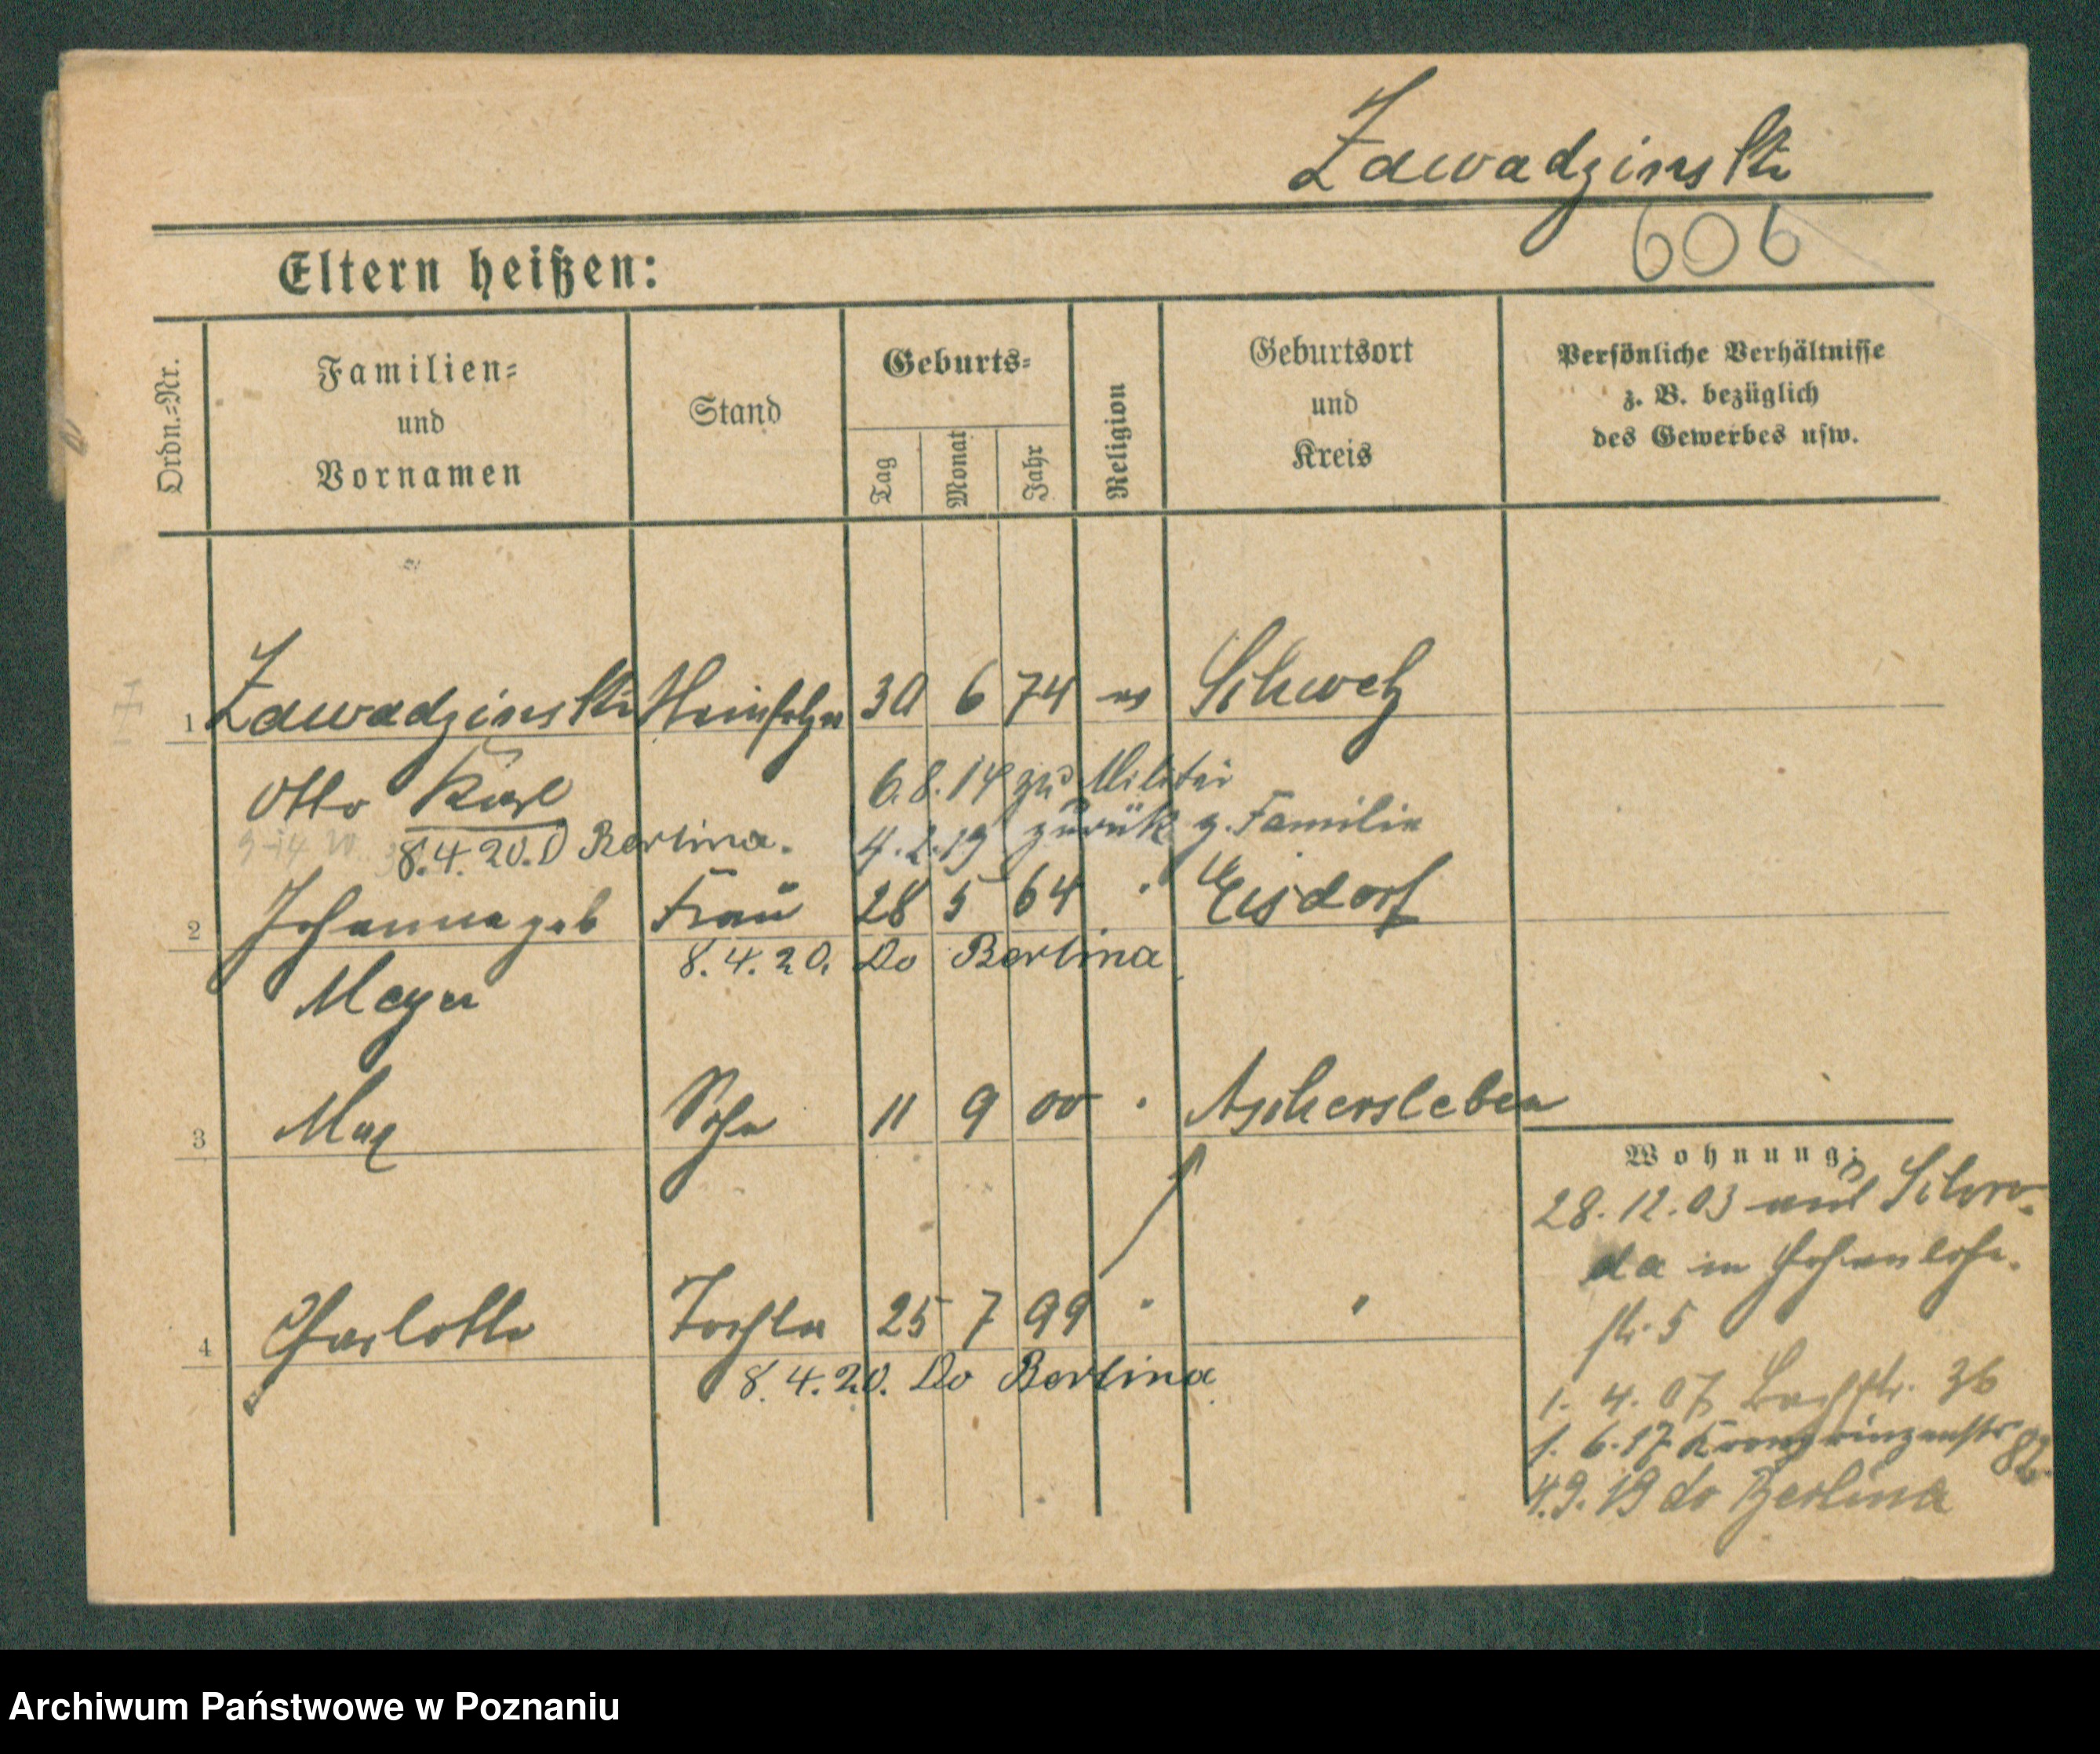 Zawadzinski
606
Eltern heißen:
Ordn.-Nr.
Familien-
und
Vornamen
Stand
Geburts-
Tag
Monat
Jahr
Religion
Geburtsort
und
Kreis
Persönliche Verhältnisse
z. B. bezüglich
des Gewerbes usw.
1 Zawadzinski 30 6 74 ev Schwetz
Otto Karl 6.8.14 zu Militär
8.4.20. D Berlina. 4.2.19 zurück z. Familie
2 Johanna geb Frau 28 5 64 " Eisdorf
8.4.20. Do Berlina
Meyer
3 Max Sohn 11 9 00 " Aschersleben
4 Charlotte Tochter 25 7 99 " "
8.4.20. Do Berlina
Wohnung:
28.12.03 aus Schro-
da in Hohenlohe-
str. 5
1. 4. 07 Bachstr. 36
1. 6. 17 Kronprinzenstr 82
4.9.19 do Berlina
Archiwum Państwowe w Poznaniu